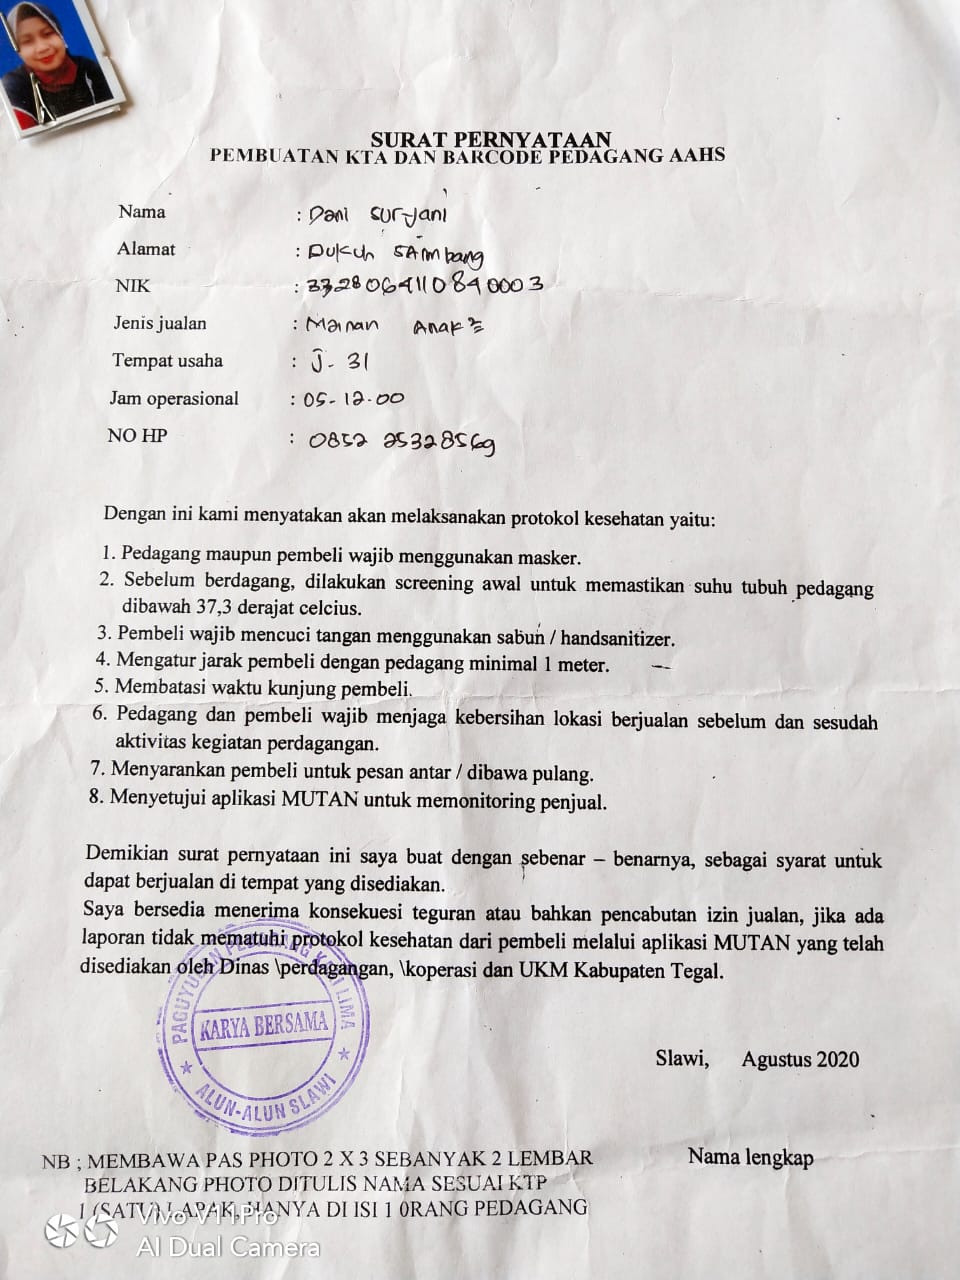 SURAT PERNYATAAN
PEMBUATAN KTA DAN BARCODE PEDAGANG AAHS
Nama : Dani Suryani
Alamat : Dukuh SAmbang
NIK : 3328064110840003
Jenis jualan : Mainan Anak²
Tempat usaha : J - 31
Jam operasional : 05 - 12.00
NO HP : 0852 25328569
Dengan ini kami menyatakan akan melaksanakan protokol kesehatan yaitu:
1. Pedagang maupun pembeli wajib menggunakan masker.
2. Sebelum berdagang, dilakukan screening awal untuk memastikan suhu tubuh pedagang
dibawah 37,3 derajat celcius.
3. Pembeli wajib mencuci tangan menggunakan sabun / handsanitizer.
4. Mengatur jarak pembeli dengan pedagang minimal 1 meter.
5. Membatasi waktu kunjung pembeli.
6. Pedagang dan pembeli wajib menjaga kebersihan lokasi berjualan sebelum dan sesudah
aktivitas kegiatan perdagangan.
7. Menyarankan pembeli untuk pesan antar / dibawa pulang.
8. Menyetujui aplikasi MUTAN untuk memonitoring penjual.
Demikian surat pernyataan ini saya buat dengan sebenar – benarnya, sebagai syarat untuk
dapat berjualan di tempat yang disediakan.
Saya bersedia menerima konsekuesi teguran atau bahkan pencabutan izin jualan, jika ada
laporan tidak mematuhi protokol kesehatan dari pembeli melalui aplikasi MUTAN yang telah
disediakan oleh Dinas \perdagangan, \koperasi dan UKM Kabupaten Tegal.
PAGUYUBAN PEDAGANG KAKI LIMA
KARYA BERSAMA
ALUN-ALUN SLAWI
Slawi, Agustus 2020
Nama lengkap
NB ; MEMBAWA PAS PHOTO 2 X 3 SEBANYAK 2 LEMBAR
BELAKANG PHOTO DITULIS NAMA SESUAI KTP
1 (SATU) LAPAK, HANYA DI ISI 1 0RANG PEDAGANG
Vivo V11Pro
AI Dual Camera